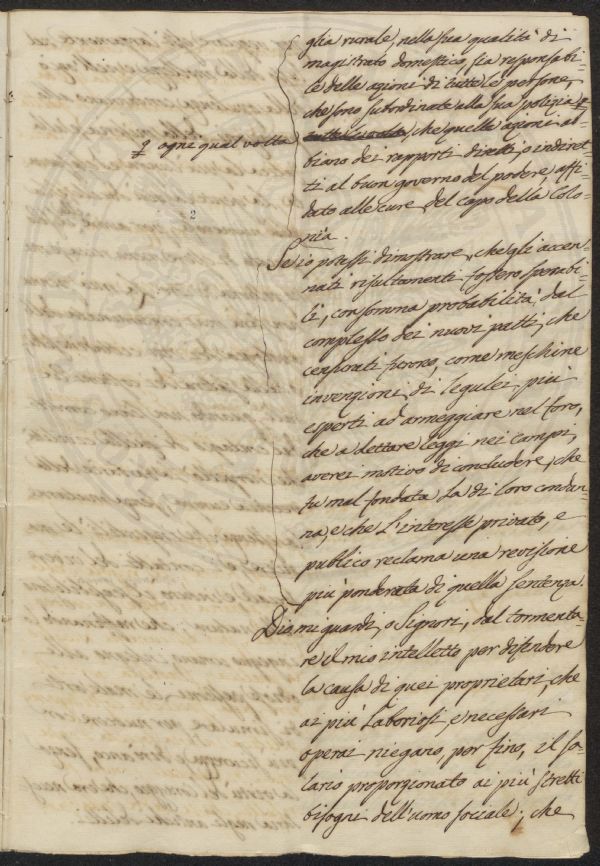 glia rurale, nella sua qualità di
magistrato domestico, sia responsabi=
le delle azioni di tutte le persone,
che sono subordinate alla sua polizia
ogni qual volta
tutte le volte, che quelle azioni ab=
biano dei rapporti diretti, o indiret=
ti al buon governo del podere, affi=
dato alle cure del capo della Colo=
nia.
Se io potessi dimostrare, che gli accen=
nati risultamenti fossero sperabi=
li, con somma probabilità, dal
complesso dei nuovi patti, che
censurati furono, come meschine
invenzioni di legulei più
esperti ad armeggiare nel foro,
che a dettare leggi nei campi,
averei motivo di concludere, che
fu mal fondata la di loro condan=
na, e che l'interesse privato, e
publico reclama una revisione
più ponderata di quella sentenza.
Dio mi guardi, o Signori, dal tormenta=
re il mio intelletto per difendere
la causa di quei proprietari, che
ai più laboriosi, e necessari
operai niegano, per fino, il sa=
lario proporzionato ai più stretti
bisogni dell'uomo sociale; che